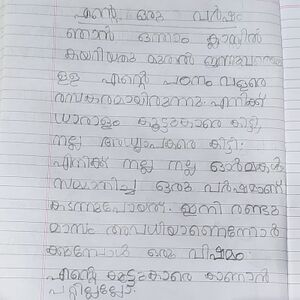 എന്റെ ഒരു വർഷം
ഞാൻ ഒന്നാം ക്ലാസിൽ
കയറിയതു മുതൽ ഇതുവരെ
ഉള്ള എന്റെ പഠനം വളരെ
രസകരമായിരുന്നു. എനിക്ക്
ധാരാളം കൂട്ടുകാരെ കിട്ടി,
നല്ല അധ്യാപകരെ കിട്ടി.
എനിക്ക് നല്ല നല്ല ഓർമകൾ
സമ്മാനിച്ച ഒരു വർഷമാണ്
കടന്നുപോയത്. ഇനി രണ്ടു
മാസം അവധിയാണെന്നോർ
ക്കുമ്പോൾ ഒരു വിഷമം.
എന്റെ കൂട്ടുകാരെ കാണാൻ
പറ്റില്ലല്ലോ.